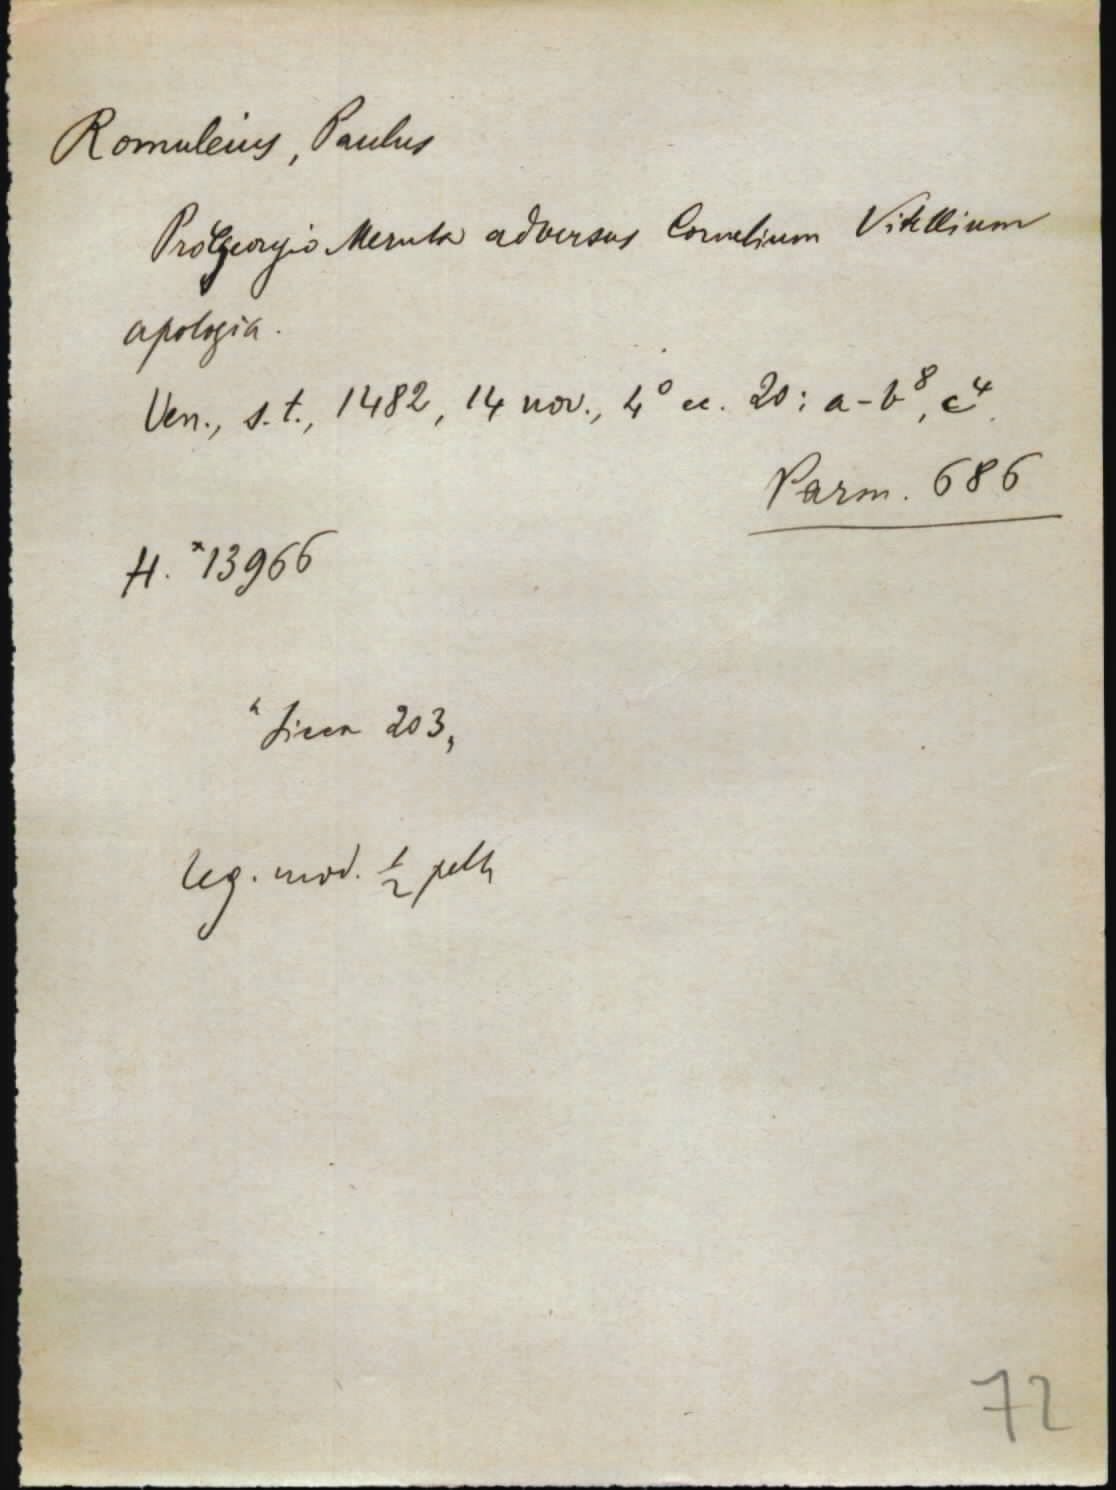 Romuleius, Paulus
Pro Georgio Merula adversus Cornelium Vitellium
apologia.
Ven., s.t., 1482, 14 nov., 4° cc. 20: a-b⁸, c⁴.
Parm. 686
H. *13966
203
leg. mod. ½ pelle
72